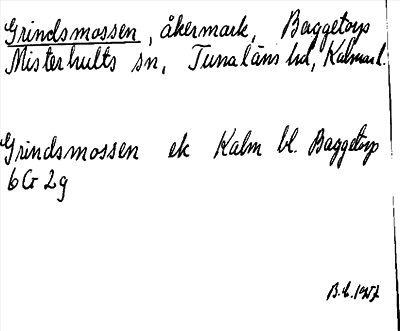 Grindsmossen, åkermark, Baggetorp
Misterhults sn, Tunaläns hd, Kalmarl.
Grindsmossen ek Kalm bl. Baggetorp
6G 2g